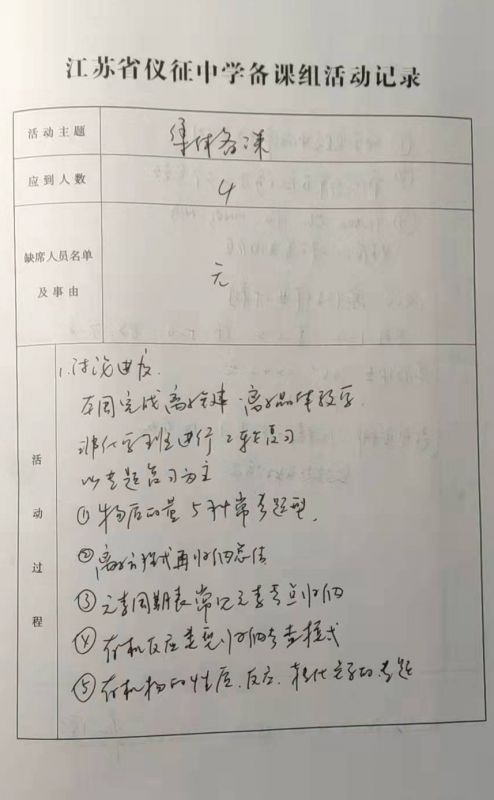 江苏省仪征中学备课组活动记录
活动主题
集体备课
应到人数
4
缺席人员名单
及事由
无
活动过程
1.讨论进度.
本周完成离子键、离子晶体教学
非化学班进行二轮复习
以专题复习为主
①物质的量5种常考题型.
②离子方程式再归纳总结
③元素周期表常见元素考点归纳
④有机反应类型归纳考查模式
⑤有机物的性质.反应.转化关系的考题